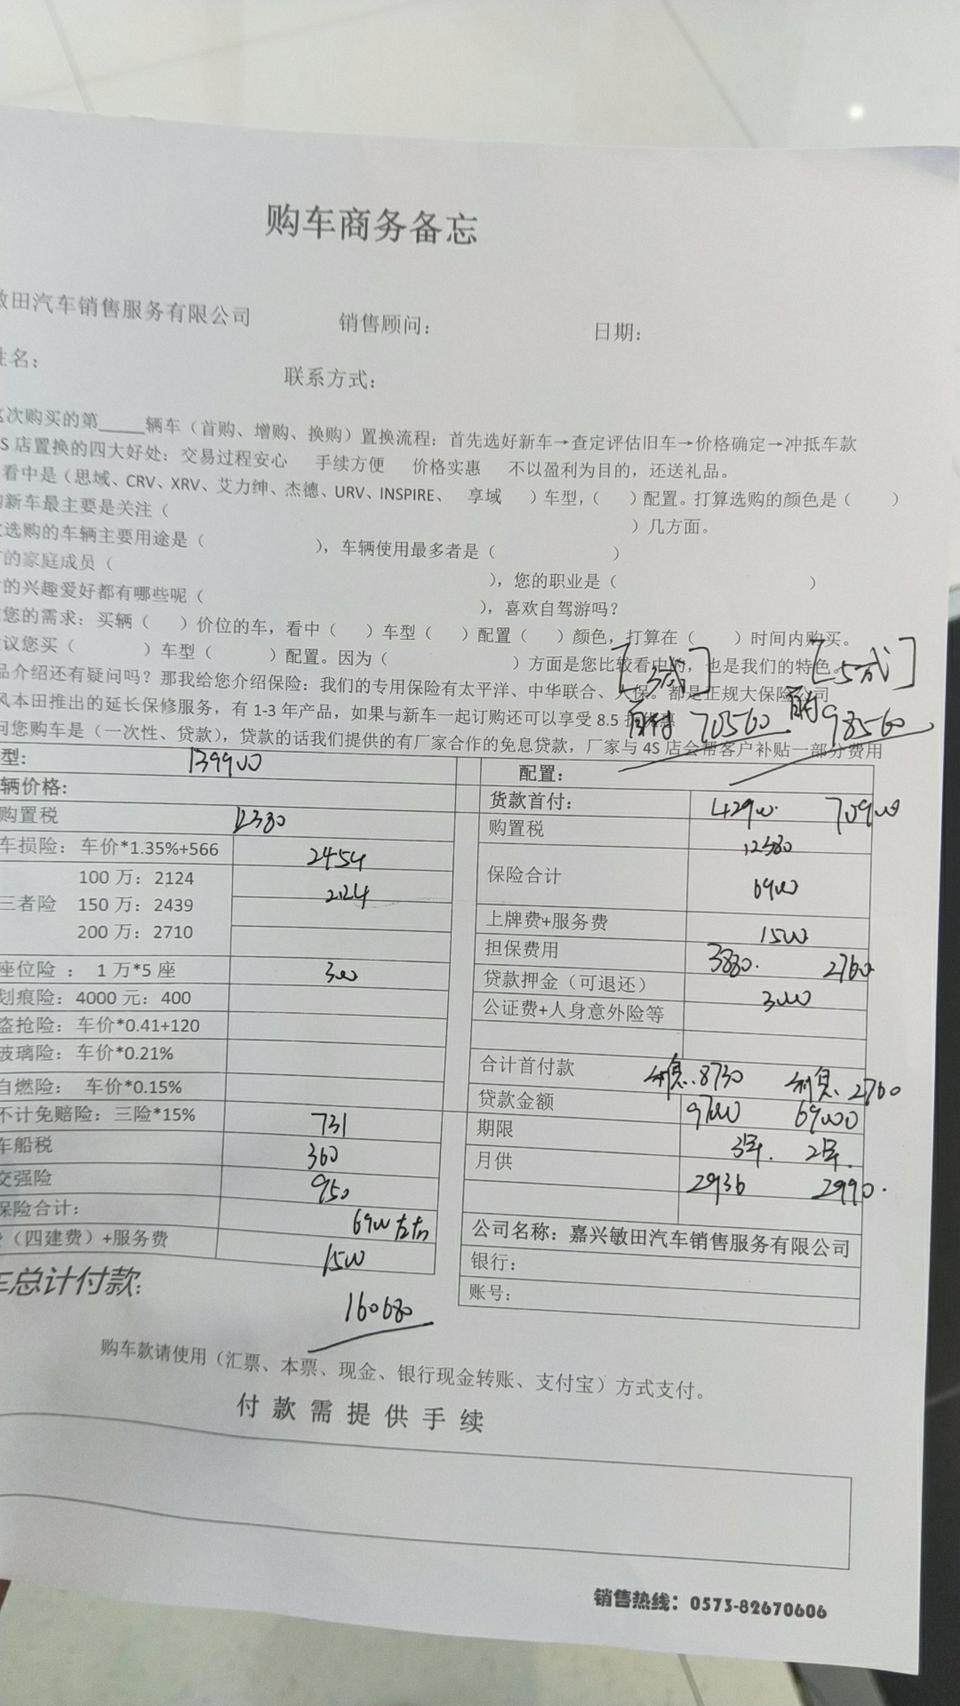 购车商务备忘
敏田汽车销售服务有限公司 销售顾问: 日期:
姓名: 联系方式:
这次购买的第_____辆车（首购、增购、换购）置换流程：首先选好新车→查定评估旧车→价格确定→冲抵车款
4S店置换的四大好处：交易过程安心 手续方便 价格实惠 不以盈利为目的，还送礼品。
看中是（思域、CRV、XRV、艾力绅、杰德、URV、INSPIRE、 享域 ）车型，（ ）配置。打算选购的颜色是（ ）
新车最主要是关注（ ）几方面。
选购的车辆主要用途是（ ），车辆使用最多者是（ ）
的家庭成员（ ），您的职业是（ ）
的兴趣爱好都有哪些呢（ ），喜欢自驾游吗？
您的需求：买辆（ ）价位的车，看中（ ）车型（ ）配置（ ）颜色，打算在（ ）时间内购买。
议您买（ ）车型（ ）配置。因为（ ）方面是您比较看中的，也是我们的特色。
品介绍还有疑问吗？那我给您介绍保险：我们的专用保险有太平洋、中华联合、人保。都是正规大保险公司
风本田推出的延长保修服务，有 1-3 年产品，如果与新车一起订购还可以享受 8.5 折优惠
问您购车是（一次性、贷款），贷款的话我们提供的有厂家合作的免息贷款，厂家与 4S 店会帮客户补贴一部分费用
[3成] [5成]
首付 70560 首付 98560
型: 139900
辆价格:
购置税 12380
车损险：车价*1.35%+566 2454
三者险 100 万：2124 2124
150 万：2439
200 万：2710
座位险 ： 1 万*5 座 300
划痕险：4000 元：400
盗抢险：车价*0.41+120
玻璃险：车价*0.21%
自燃险： 车价*0.15%
不计免赔险：三险*15% 731
车船税 360
交强险 950
保险合计: 6900左右
（四建费）+服务费 1500
车总计付款: 160680
配置:
货款首付: 42900 70900
购置税 12380
保险合计 6900
上牌费+服务费 1500
担保费用 3880. 2760
贷款押金（可退还） 3000
公证费+人身意外险等
合计首付款 利息.8730 利息.2760
贷款金额 97000 69000
期限 3年. 2年.
月供 2936 2990.
公司名称：嘉兴敏田汽车销售服务有限公司
银行:
账号:
购车款请使用（汇票、本票、现金、银行现金转账、支付宝）方式支付。
付款需提供手续
销售热线：0573-82670606